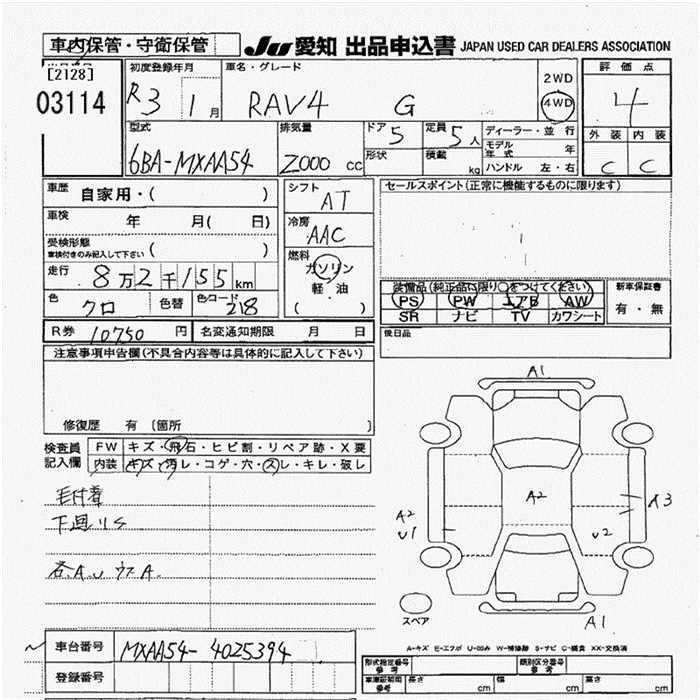 車内保管・守衛保管
JU 愛知 出品申込書 JAPAN USED CAR DEALERS ASSOCIATION
[2128]
03114
初度登録年月
R3 1月
車名・グレード
RAV4 G
2WD
4WD
評価点
4
外装 内装
C C
型式
6BA-MXAA54
排気量
2000 cc
ドア 5
形状
定員 5人
積載 kg
ディーラー・並行
モデル年式 年
ハンドル 左・右
車歴 自家用・( )
車検 年 月( 日)
受検形態 ( )
車検付きのみ記入して下さい
走行 8万2千155km
色 クロ 色替 色コード 218
シフト
AT
冷房
AAC
燃料
ガソリン
軽・油
( )
セールスポイント(正常に機能するものに限ります)
装備品(純正品に限り○をつけてください)
PS PW エアB AW
SR ナビ TV カワシート
新車保証書
有・無
後日品
R券 10750円 名変通知期限 月 日
注意事項申告欄(不具合内容等は具体的に記入して下さい)
修復歴 有 [箇所 ]
検査員記入欄
FW キズ・飛石・ヒビ割・リペア跡・X要
内装 キズ・汚レ・コゲ・穴・スレ・キレ・破レ
毛付着
下廻りS
各A.U ウスA.
A1
A2
A2
U1
A3
U2
A1
スペア
A-キズ E-エクボ U-凹み W-補修跡 S-サビ C-腐食 XX-交換済
車台番号 MXAA54-4025394
登録番号
型式指定番号 参考
類別区分番号 参考
車庫証明用 参考
長さ cm 幅 cm 高さ cm